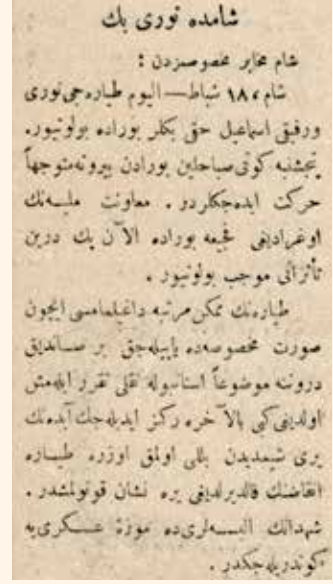 شامده نوری بك
شام مخابر مخصوصمزدن :
شام ، ١٨ شباط — اليوم طياره‌جی نوری
ورفيقی اسماعيل حقی بكلر بوراده بولونيور.
پنجشنبه كونی صباحلين بورادن بيروته متوجهاً
حركت ايده‌جكلردر . معاونت مليه‌نك
اوغراديغی فجيعه بوراده الآن پك درين
تأثراتی موجب بولونيور .
طياره‌نك ممكن مرتبه داغيلمامسی ايچون
صورت مخصوصه‌ده ياپيله‌جق بر صانديق
دروننه موضوعاً استانبوله نقلی تقرر ايله‌مش
اولديغی كبی بالآخره ركز ايديله‌جك آبده‌نك
يری شيمديدن بللی اولمق اوزره طياره
انقاضنك قالديرلديغی يره نشان قونولمشدر .
شهدانك البسه‌لری ده موزهٔ عسكری‌يه
كوندريله‌جكدر .